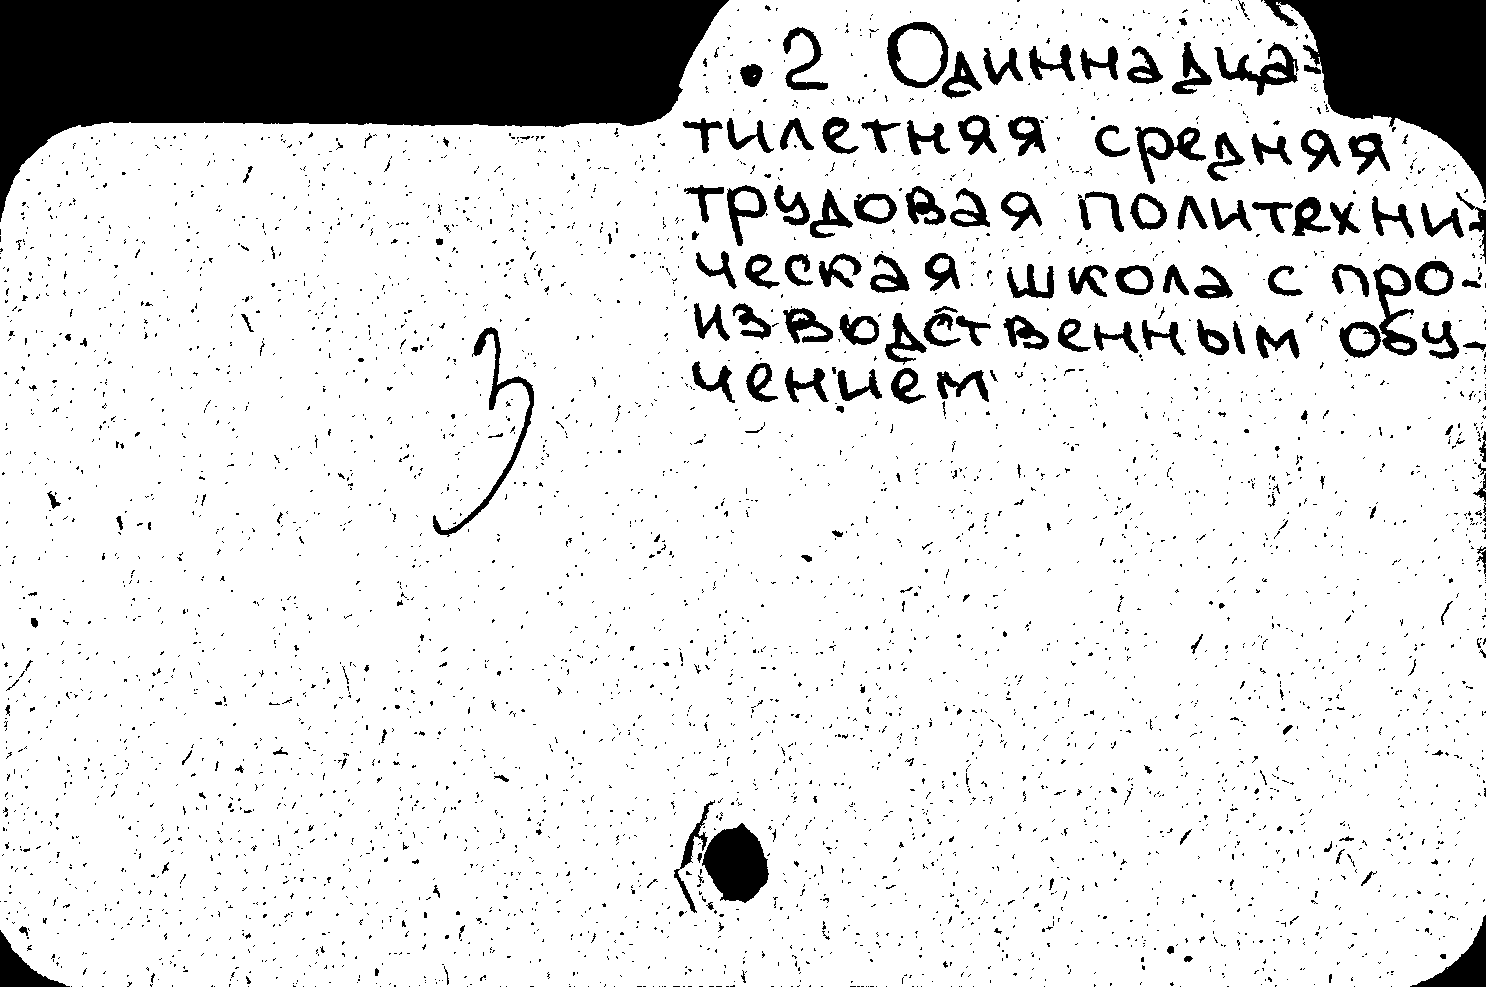 .2 Одиннадца-
тилетняя средняя
трудовая политехни-
ческая школа с про-
изводственным обу-
чением
3